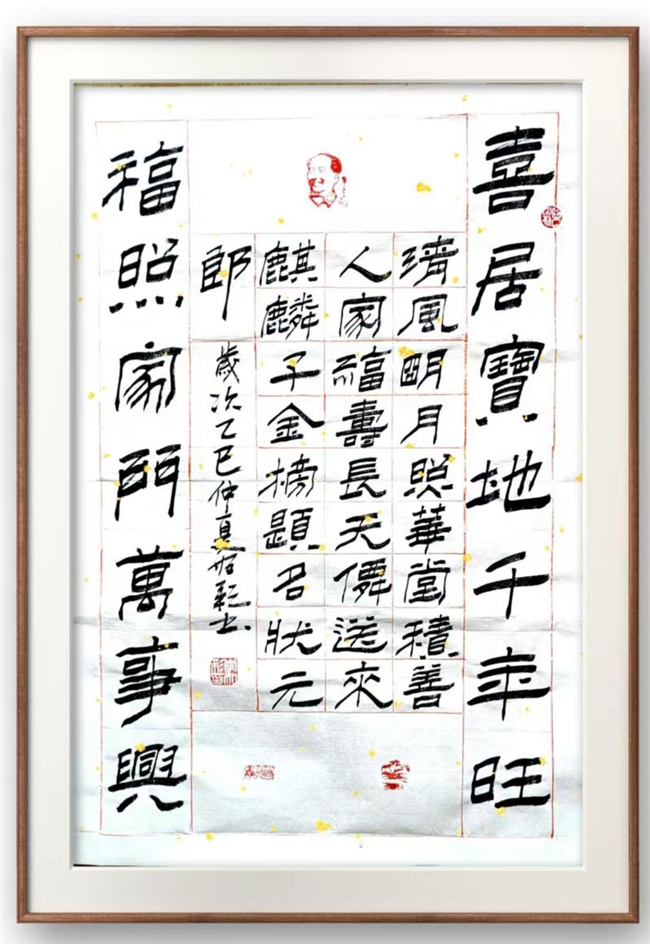 喜居寶地千年旺
清風明月照華堂積善
人家福壽長天僊送來
麒麟子金榜題名狀元
郎
歲次乙巳仲夏
福照家門萬事興